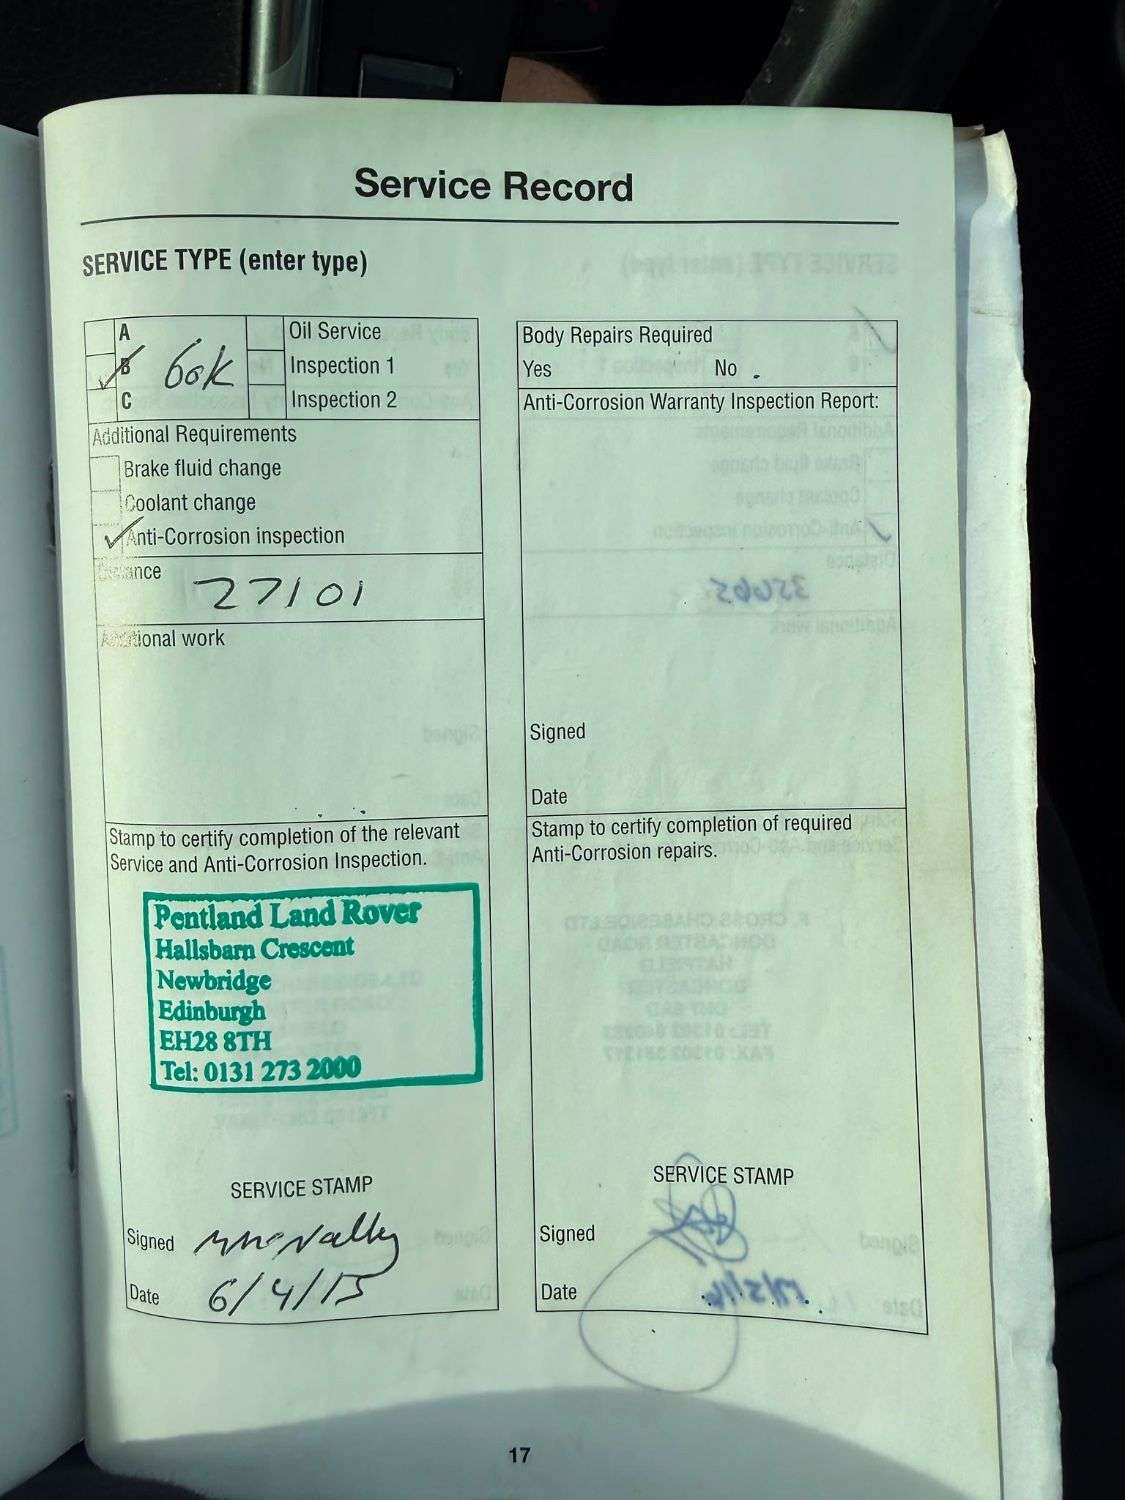 Service Record
SERVICE TYPE (enter type)
A
B
C
60K
Oil Service
Inspection 1
Inspection 2
Additional Requirements
Brake fluid change
Coolant change
Anti-Corrosion inspection
Distance
27101
Additional work
Stamp to certify completion of the relevant
Service and Anti-Corrosion Inspection.
Pentland Land Rover
Hallsbarn Crescent
Newbridge
Edinburgh
EH28 8TH
Tel: 0131 273 2000
SERVICE STAMP
Signed McNally
Date 6/4/15
Body Repairs Required
Yes No
Anti-Corrosion Warranty Inspection Report:
Signed
Date
Stamp to certify completion of required
Anti-Corrosion repairs.
SERVICE STAMP
Signed
Date
17